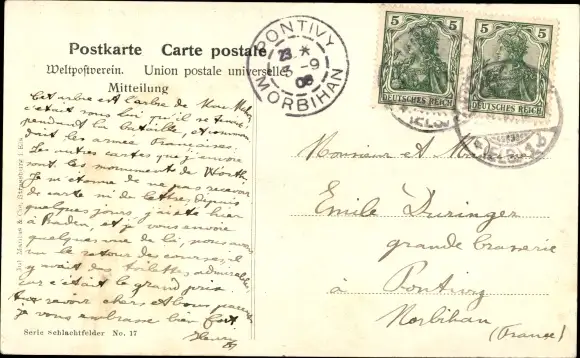 Postkarte Carte postale
Weltpostverein. Union postale universelle
Mitteilung
PONTIVY
23 * 8-9 06
MORBIHAN
5 5 5 5
DEUTSCHES REICH DEUTSCHES REICH
Cet arbre est l'arbre de Mac Mahon
c'était sous lui qu'il se tenait
pendant la bataille, et
dait les armée Françaises.
Les autres cartes que j'envoie
sont les monuments de Wörth
Je m'étonne de ne pas recevoir
de carte ni de lettres depuis
quelques jours, j'ai été hier
à Baden, et je vous envoie
quelques vue de là, nous avons
vu le retour des courses, il
y avait des toilettes admirables
car c'était le grand prix.
Au revoir chers et bons parents
je vous embrasse bien fort
Henry
Monsieur et
Emile Duringer
grande brasserie
à Pontivy
Morbihan
(France)
Serie Schlachtfelder No. 17